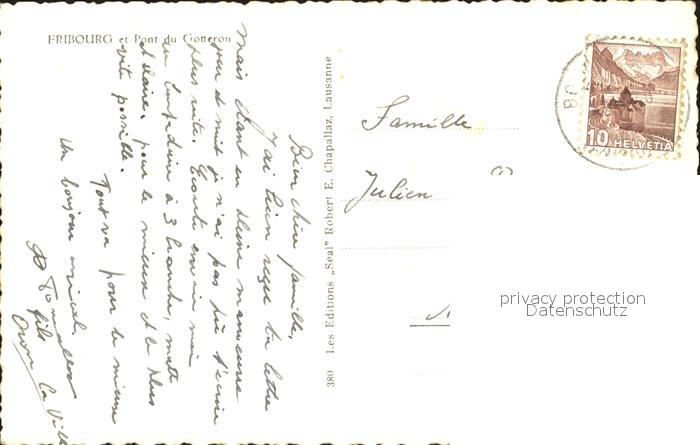 FRIBOURG et Pont du Gotteron
Bien chère famille,
J'ai bien reçu ta lettre
mais étant en pleine manœuvre
jour de nuit je n'ai pas pu t'écrire
plus vite. Ecoute envoie moi
un à 3 branches, matt
et claire. pour le mieux et le plus
vite possible.
Tout va pour le mieux
Un bonjour amical.
fils
Oron la Ville
380 Les Editions „Seal" Robert E. Chapallaz, Lausanne
Famille
Julien
10 HELVETIA
privacy protection
Datenschutz